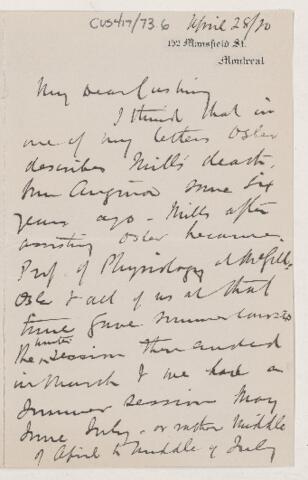 CUS417/73.6 April 28/20
192 Mansfield St.
Montreal
My Dear Cushing
I think that in
one of my letters Osler
describes Mills's death,
from Angina some six
years ago - Mills after
assisting Osler became
Prof. of Physiology at McGill
Osler & all of us at that
time gave summer courses
The winter session then ended
in March & we had a
Summer session May
June July - or rather Middle
of April to Middle of July